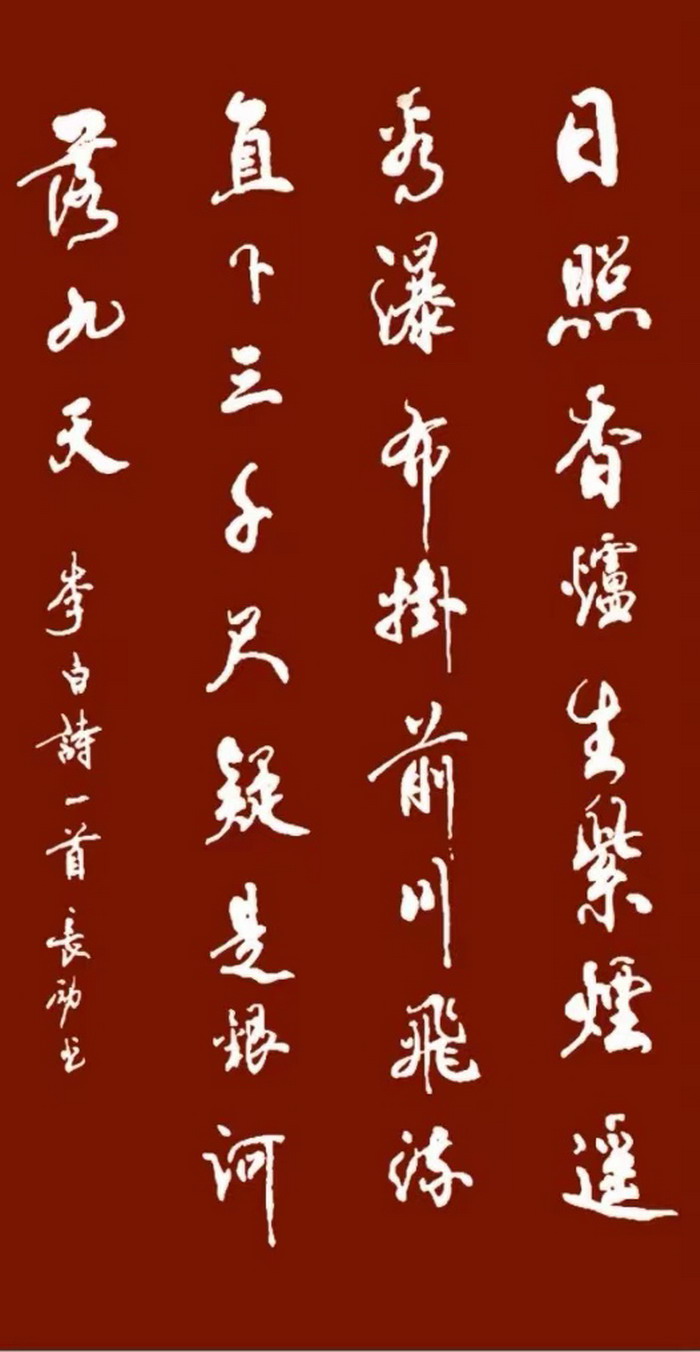 日照香爐生紫煙遥
看瀑布掛前川飛流
直下三千尺疑是銀河
落九天 李白詩一首長勵书